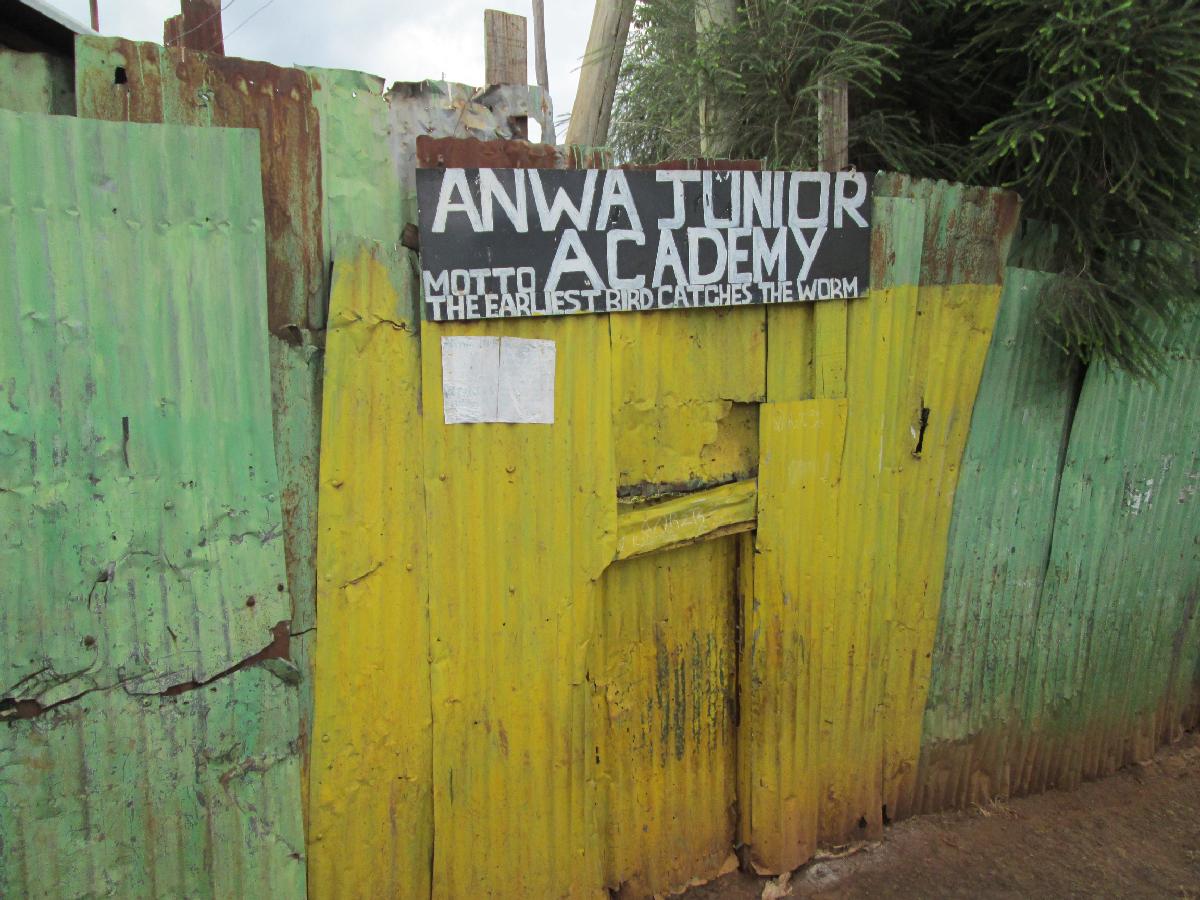 ANWA JUNIOR
ACADEMY
MOTTO
THE EARLIEST BIRD CATCHES THE WORM